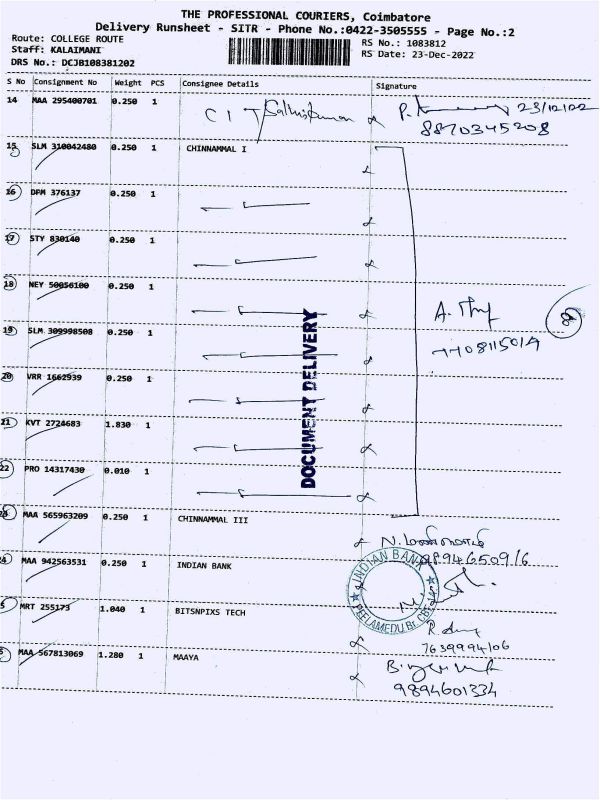 THE PROFESSIONAL COURIERS, Coimbatore
Delivery Runsheet - SITR - Phone No.:0422-3505555 - Page No.:2
Route: COLLEGE ROUTE
Staff: KALAIMANI
DRS No.: DCJB108381202
RS No.: 1083812
RS Date: 23-Dec-2022
S No Consignment No Weight PCS Consignee Details Signature
14 MAA 295400701 0.250 1 CIT 23/12/22
8870345208
15 SLM 310042480 0.250 1 CHINNAMMAL I
16 DPM 376137 0.250 1
17 STY 830140 0.250 1
18 NEY 50056100 0.250 1
A.
7708115014
19 SLM 309998508 0.250 1
20 VRR 1662939 0.250 1
21 KVT 2724683 1.830 1
22 PRO 14317430 0.010 1
DOCUMENT DELIVERY
23 MAA 565963209 0.250 1 CHINNAMMAL III
9894650916
24 MAA 942563531 0.250 1 INDIAN BANK
INDIAN BANK
PEELAMEDU Br. CBE
MRT 255173 1.040 1 BITSNPIXS TECH
7639994106
MAA 567813069 1.280 1 MAAYA
9894601334